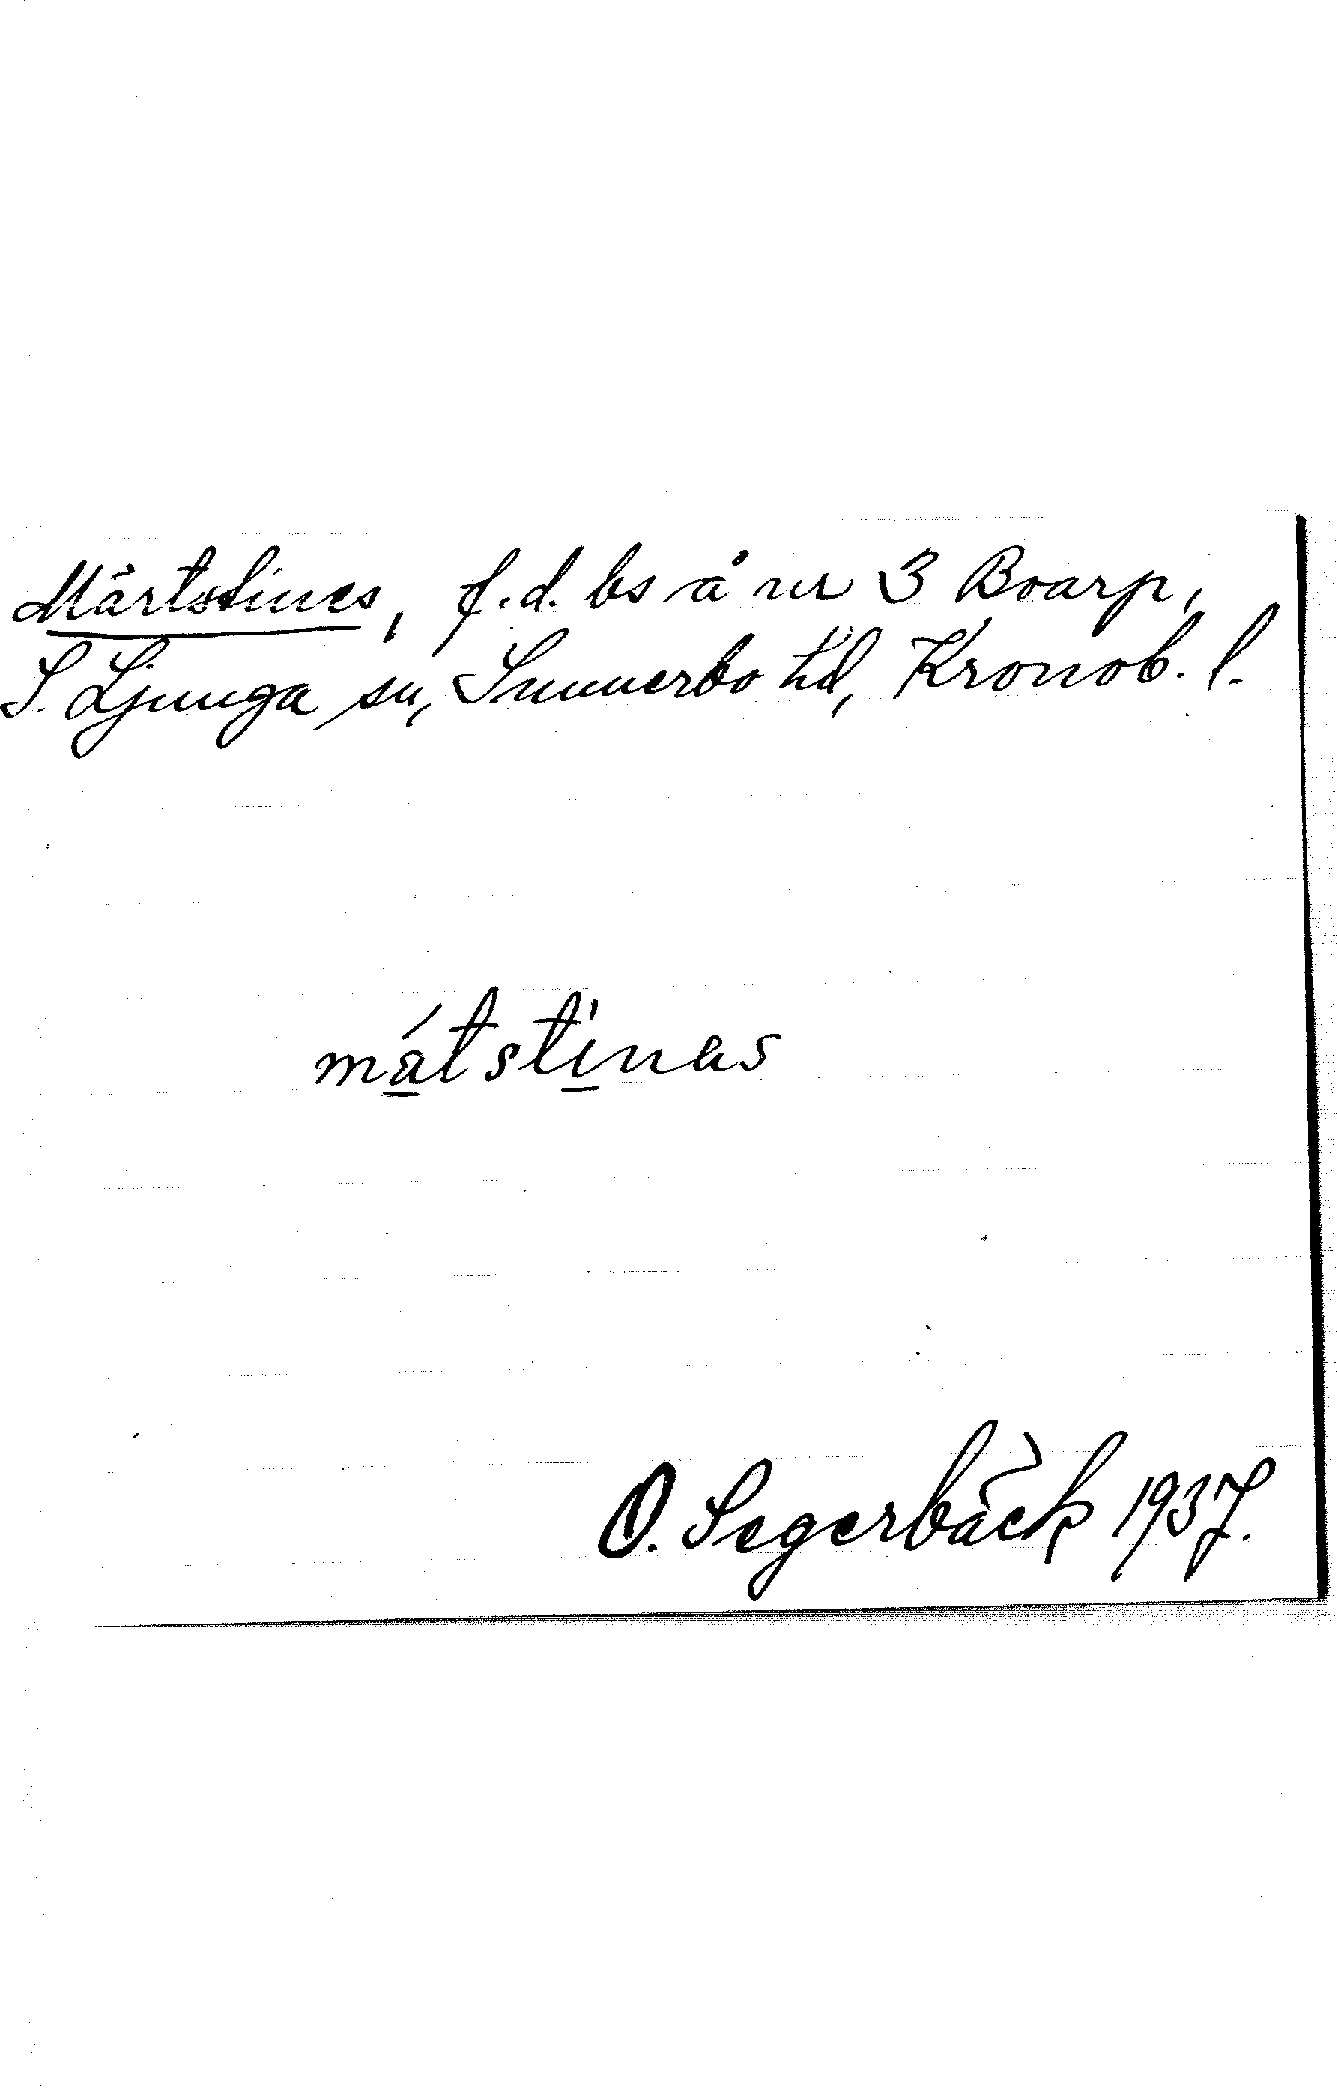 Märtstines, f.d. bs å nr 3 Boarp,
S. Ljunga sn, Sunnerbo hd, Kronob. l.
mátstinas
O. Segerbäck 1937.